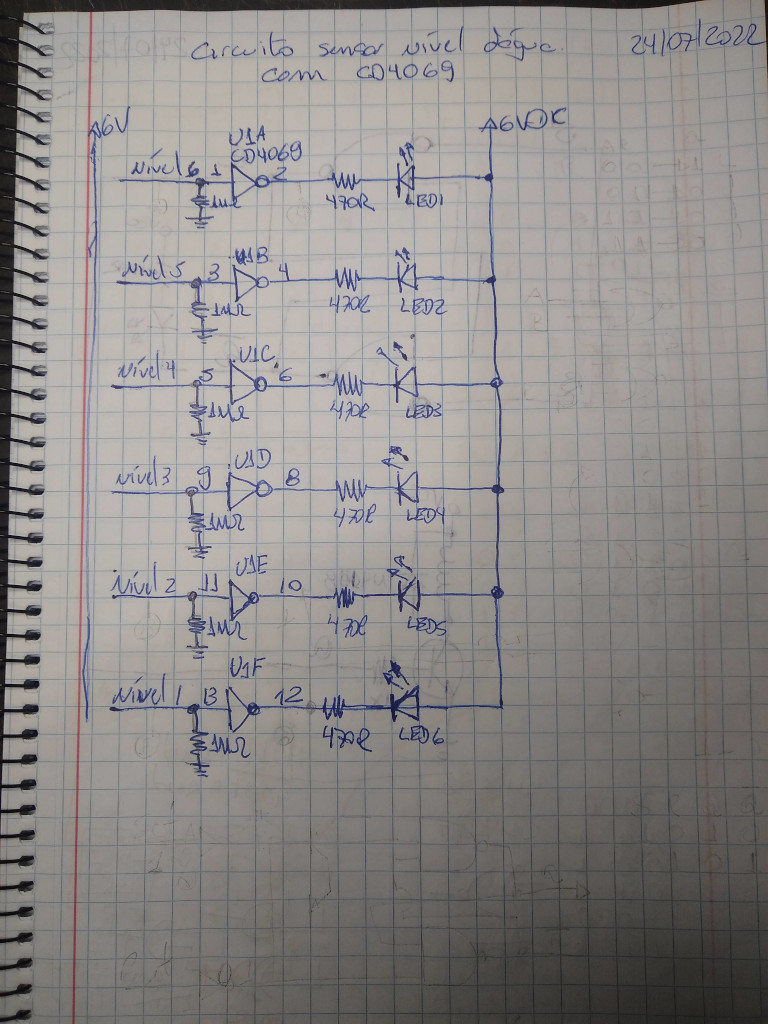 Circuito sensor nível dágua 24/07/2022
com CD4069
6V
6VDC
U1A
CD4069
Nível 6 1 2
1MΩ
470R
LED1
U1B
Nível 5 3 4
1MΩ
470R
LED2
U1C
Nível 4 5 6
1MΩ
470R
LED3
U1D
Nível 3 9 8
1MΩ
470R
LED4
U1E
Nível 2 11 10
1MΩ
470R
LED5
U1F
Nível 1 13 12
1MΩ
470R
LED6